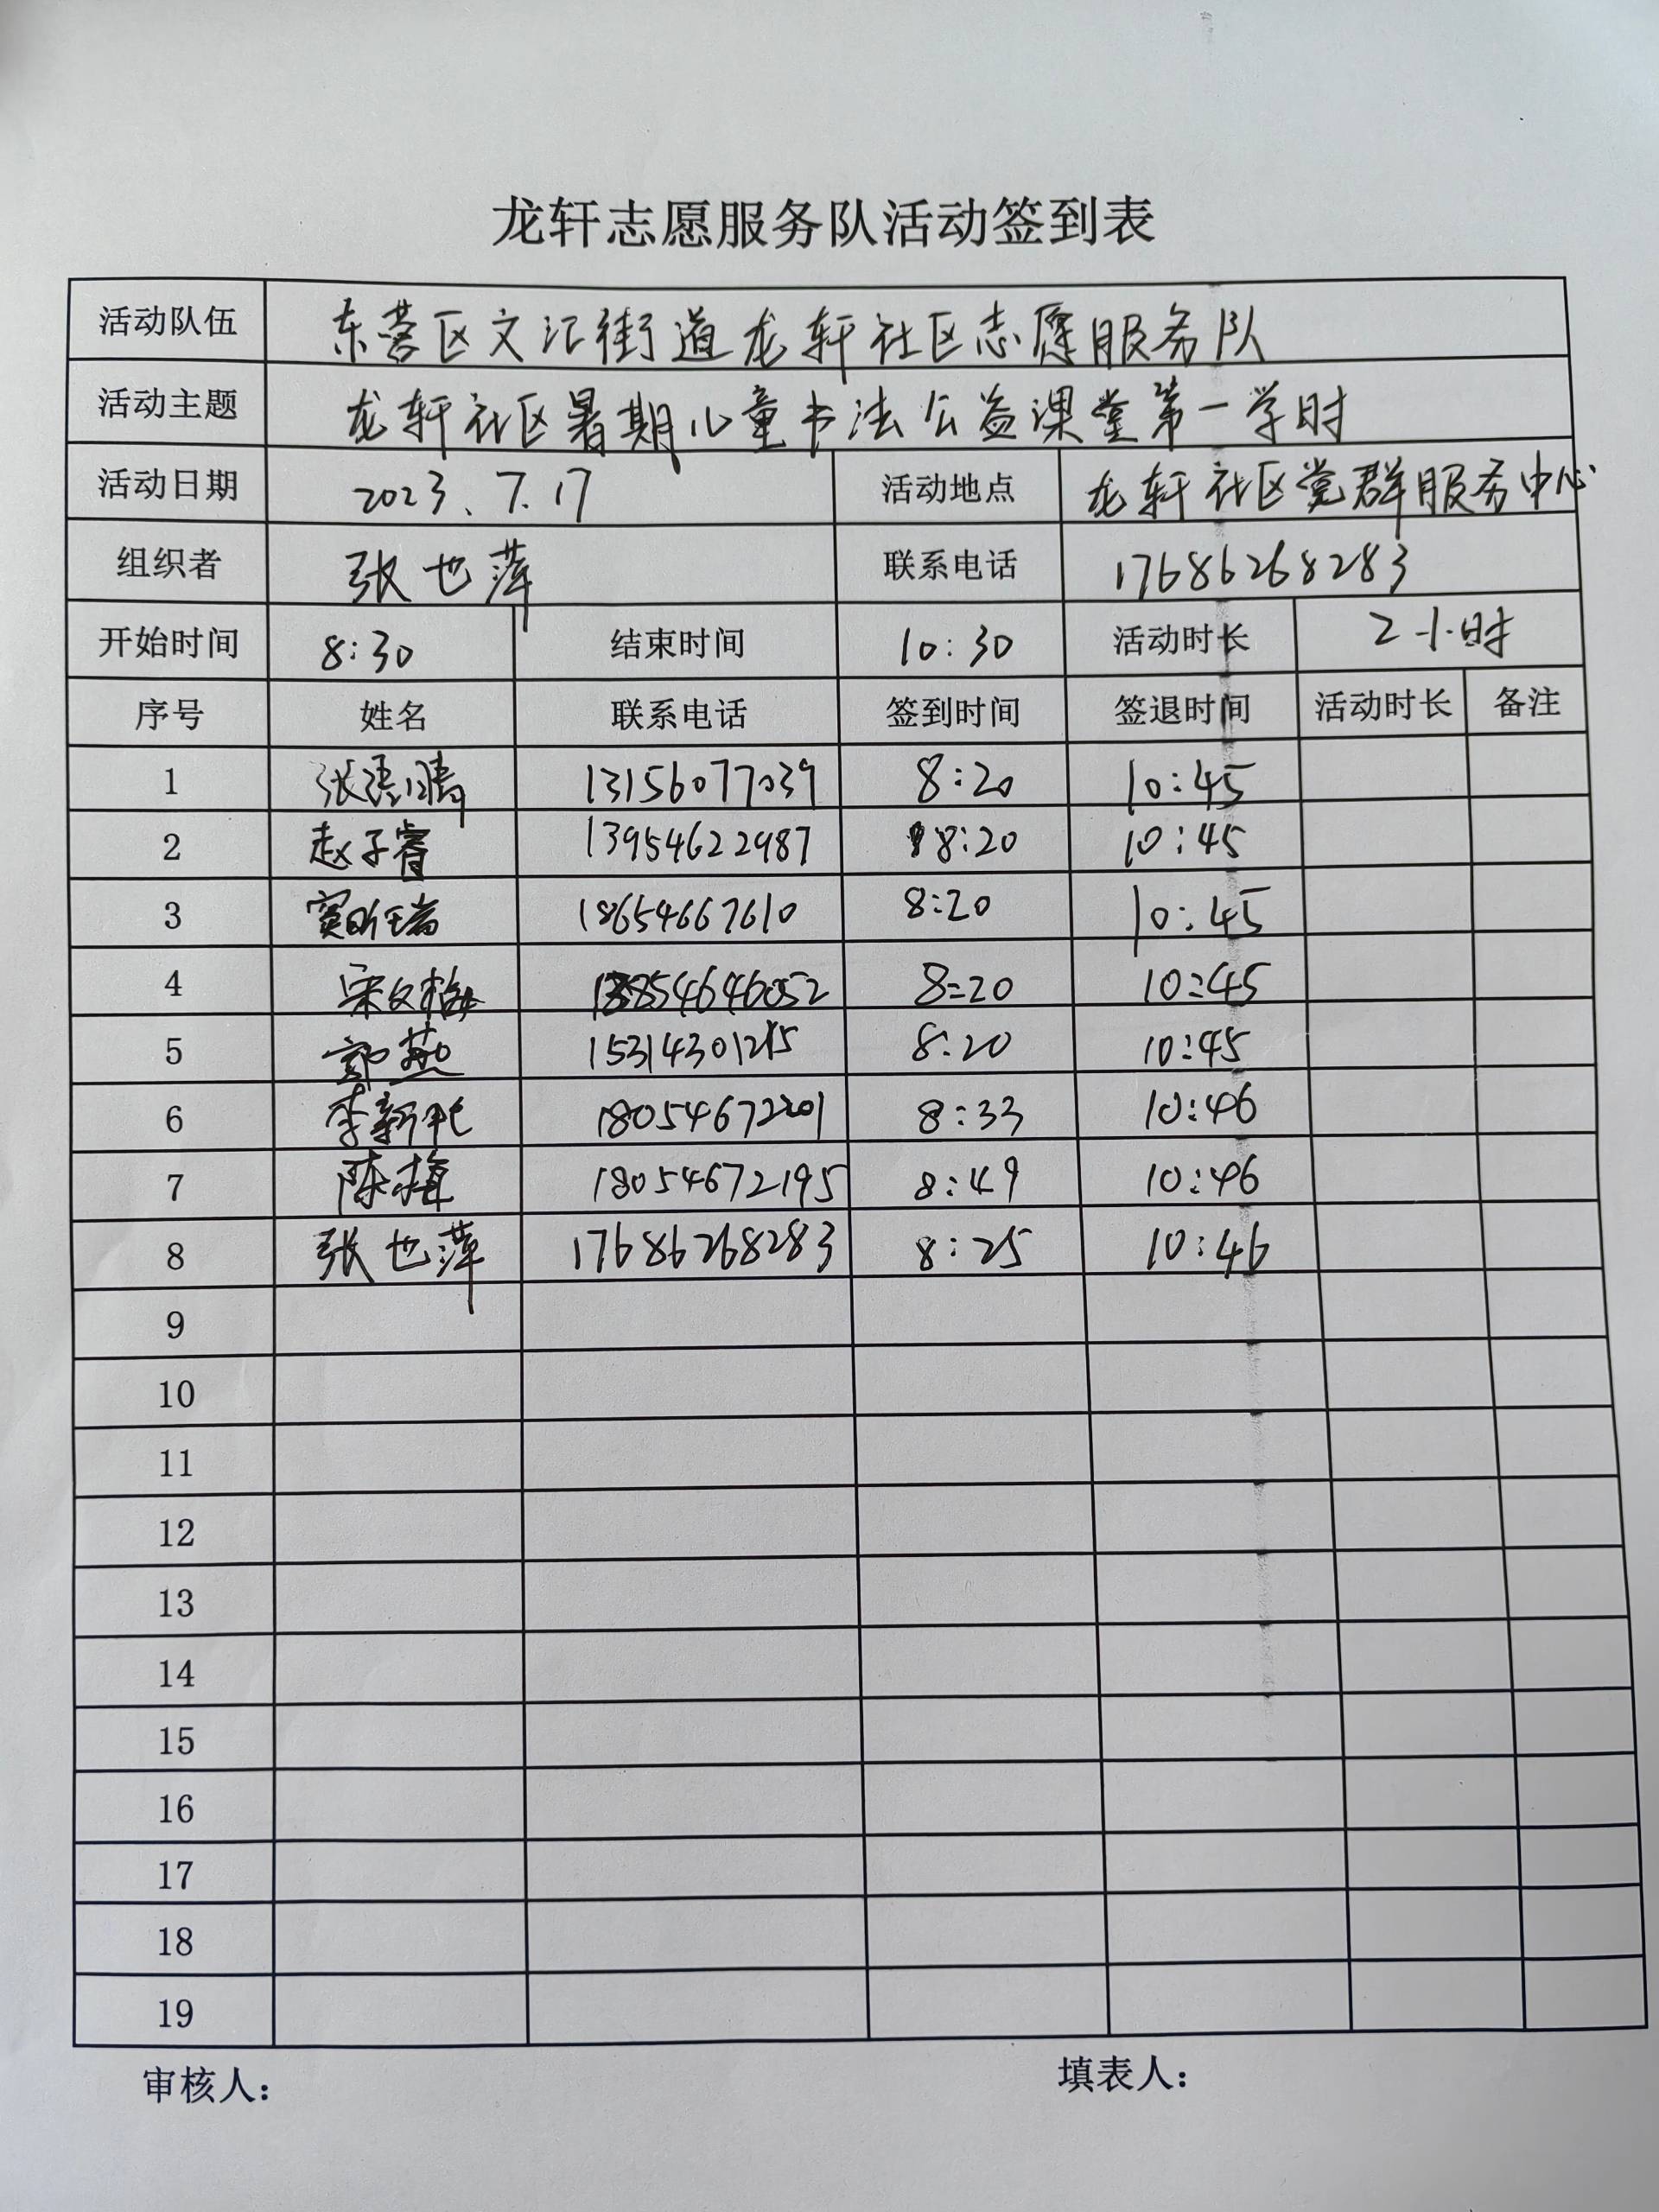 龙轩志愿服务队活动签到表
活动队伍 东营区文汇街道龙轩社区志愿服务队
活动主题 龙轩社区暑期儿童书法公益课堂第一学时
活动日期 2023.7.17 活动地点 龙轩社区党群服务中心
组织者 张也萍 联系电话 17686268283
开始时间 8:30 结束时间 10:30 活动时长 2小时
序号 姓名 联系电话 签到时间 签退时间 活动时长 备注
1 13156077039 8:20 10:45
2 赵子睿 13954622987 8:20 10:45
3 18654667610 8:20 10:45
4 宋文梅 8:20 10:45
5 郭燕 8:20 10:45
6 18054672201 8:33 10:46
7 陈梅 18054672195 8:49 10:46
8 张也萍 17686268283 8:25 10:46
9
10
11
12
13
14
15
16
17
18
19
审核人: 填表人: